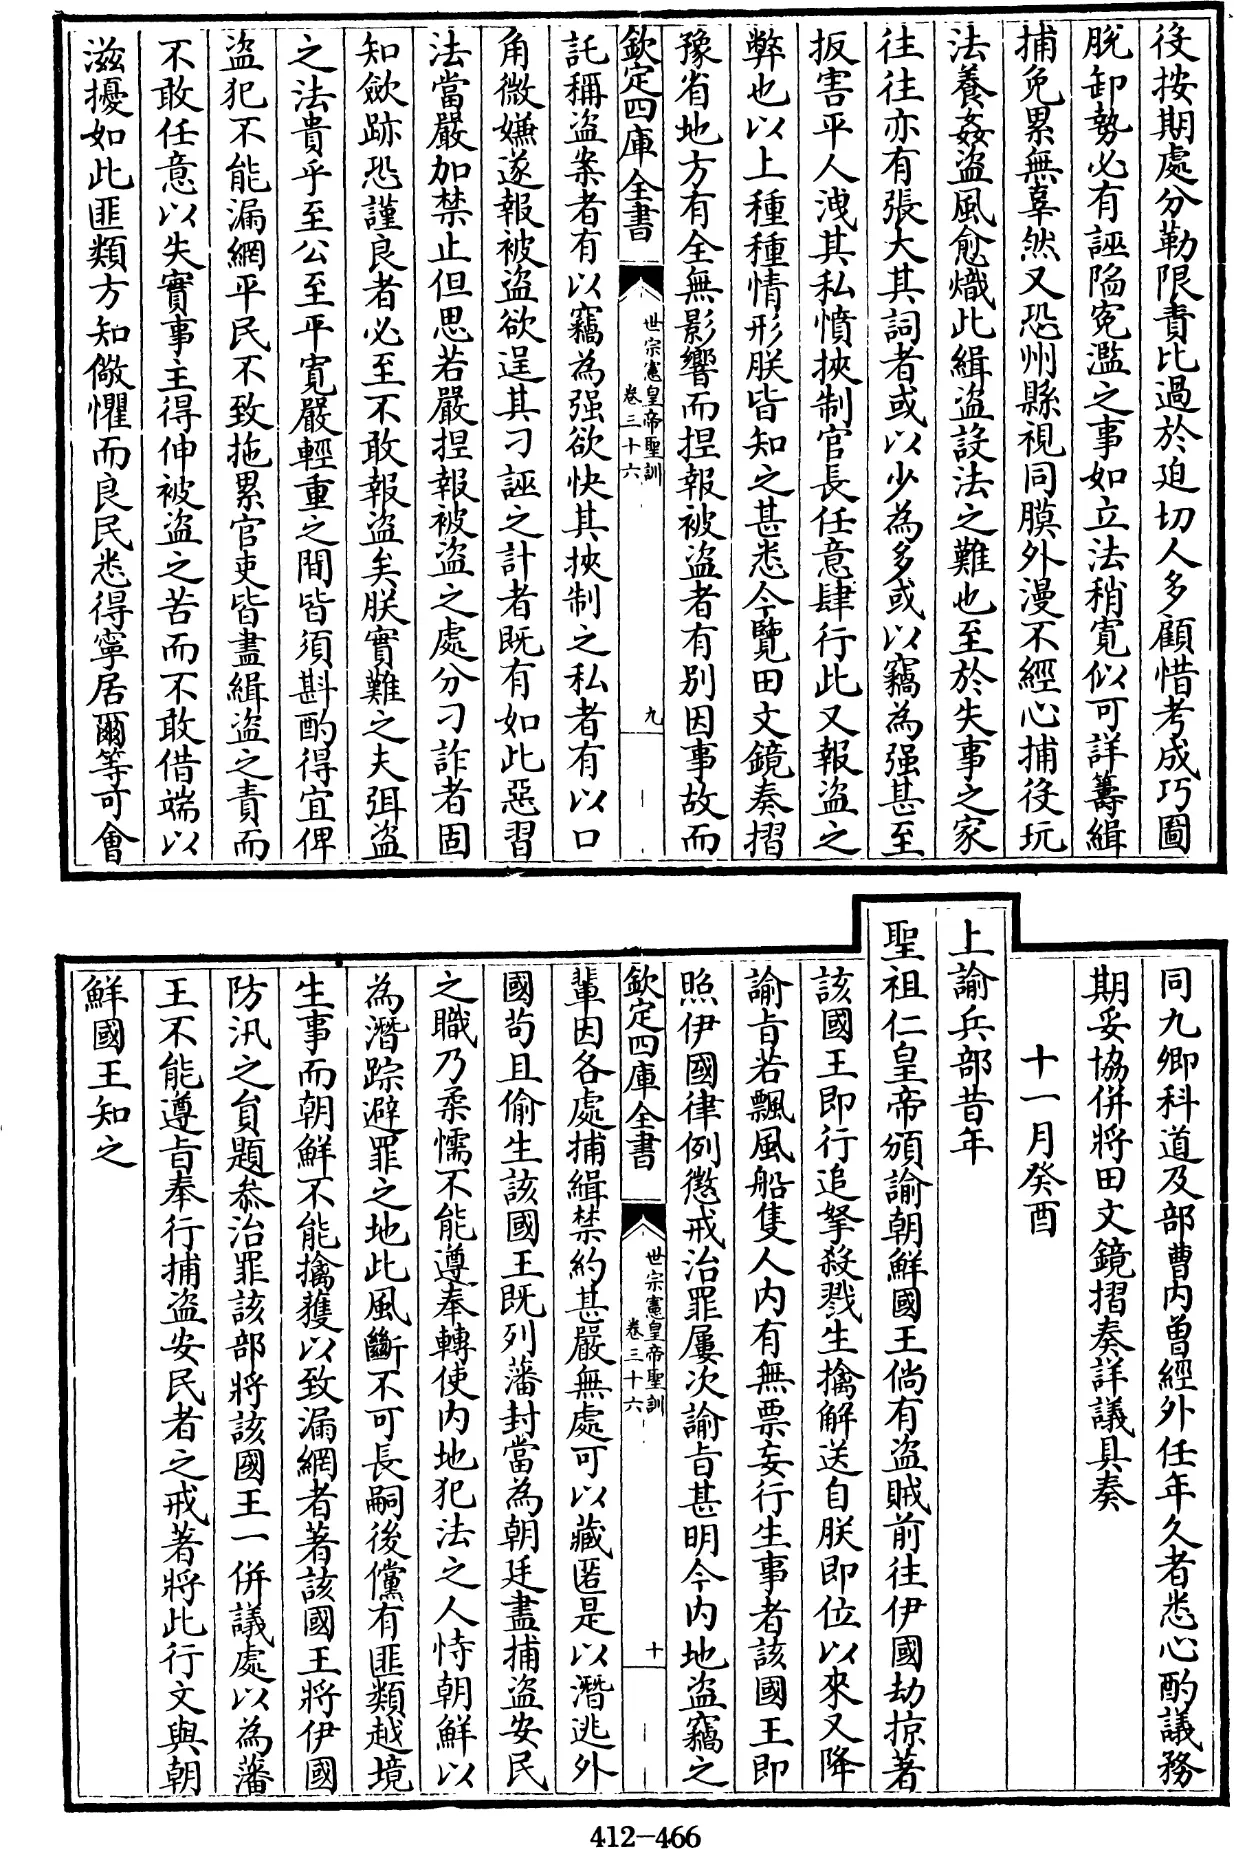 役按期處分勒限責比過於迫切人多顧惜考成巧圖
脫卸勢必有誣陷寃濫之事如立法稍寛似可詳籌緝
捕免累無辜然又恐州縣視同膜外漫不經心捕役玩
法養姦盜風愈熾此緝盜設法之難也至於失事之家
往往亦有張大其詞者或以少為多或以竊為强甚至
扳害平人洩其私憤挾制官長任意肆行此又報盜之
弊也以上種種情形朕皆知之甚悉今覽田文鏡奏摺
豫省地方有全無影響而捏報被盜者有別因事故而
欽定四庫全書
世宗憲皇帝聖訓
卷三十六
九
託稱盜案者有以竊為强欲快其挾制之私者有以口
角微嫌遂報被盜欲逞其刁誣之計者既有如此惡習
法當嚴加禁止但思若嚴捏報被盜之處分刁詐者固
知斂跡恐謹良者必至不敢報盜矣朕實難之夫弭盜
之法貴乎至公至平寛嚴輕重之間皆須斟酌得宜俾
盜犯不能漏網平民不致拖累官吏皆盡緝盜之責而
不敢任意以失實事主得伸被盜之苦而不敢借端以
滋擾如此匪類方知儆懼而良民悉得寧居爾等可會
同九卿科道及部曹内曾經外任年久者悉心酌議務
期妥協併將田文鏡摺奏詳議具奏
十一月癸酉
上諭兵部昔年
聖祖仁皇帝頒諭朝鮮國王倘有盜賊前往伊國劫掠著
該國王即行追拏殺戮生擒解送自朕即位以來又降
諭旨若飄風船隻人内有無票妄行生事者該國王即
照伊國律例懲戒治罪屢次諭旨甚明今内地盜竊之
欽定四庫全書
世宗憲皇帝聖訓
卷三十六
十
輩因各處捕緝禁約甚嚴無處可以藏匿是以潛逃外
國茍且偷生該國王既列藩封當為朝廷盡捕盜安民
之職乃柔懦不能遵奉轉使内地犯法之人恃朝鮮以
為潛踪避罪之地此風斷不可長嗣後儻有匪類越境
生事而朝鮮不能擒獲以致漏網者著該國王將伊國
防汛之員題叅治罪該部將該國王一併議處以為藩
王不能遵旨奉行捕盜安民者之戒著將此行文與朝
鮮國王知之
412—466